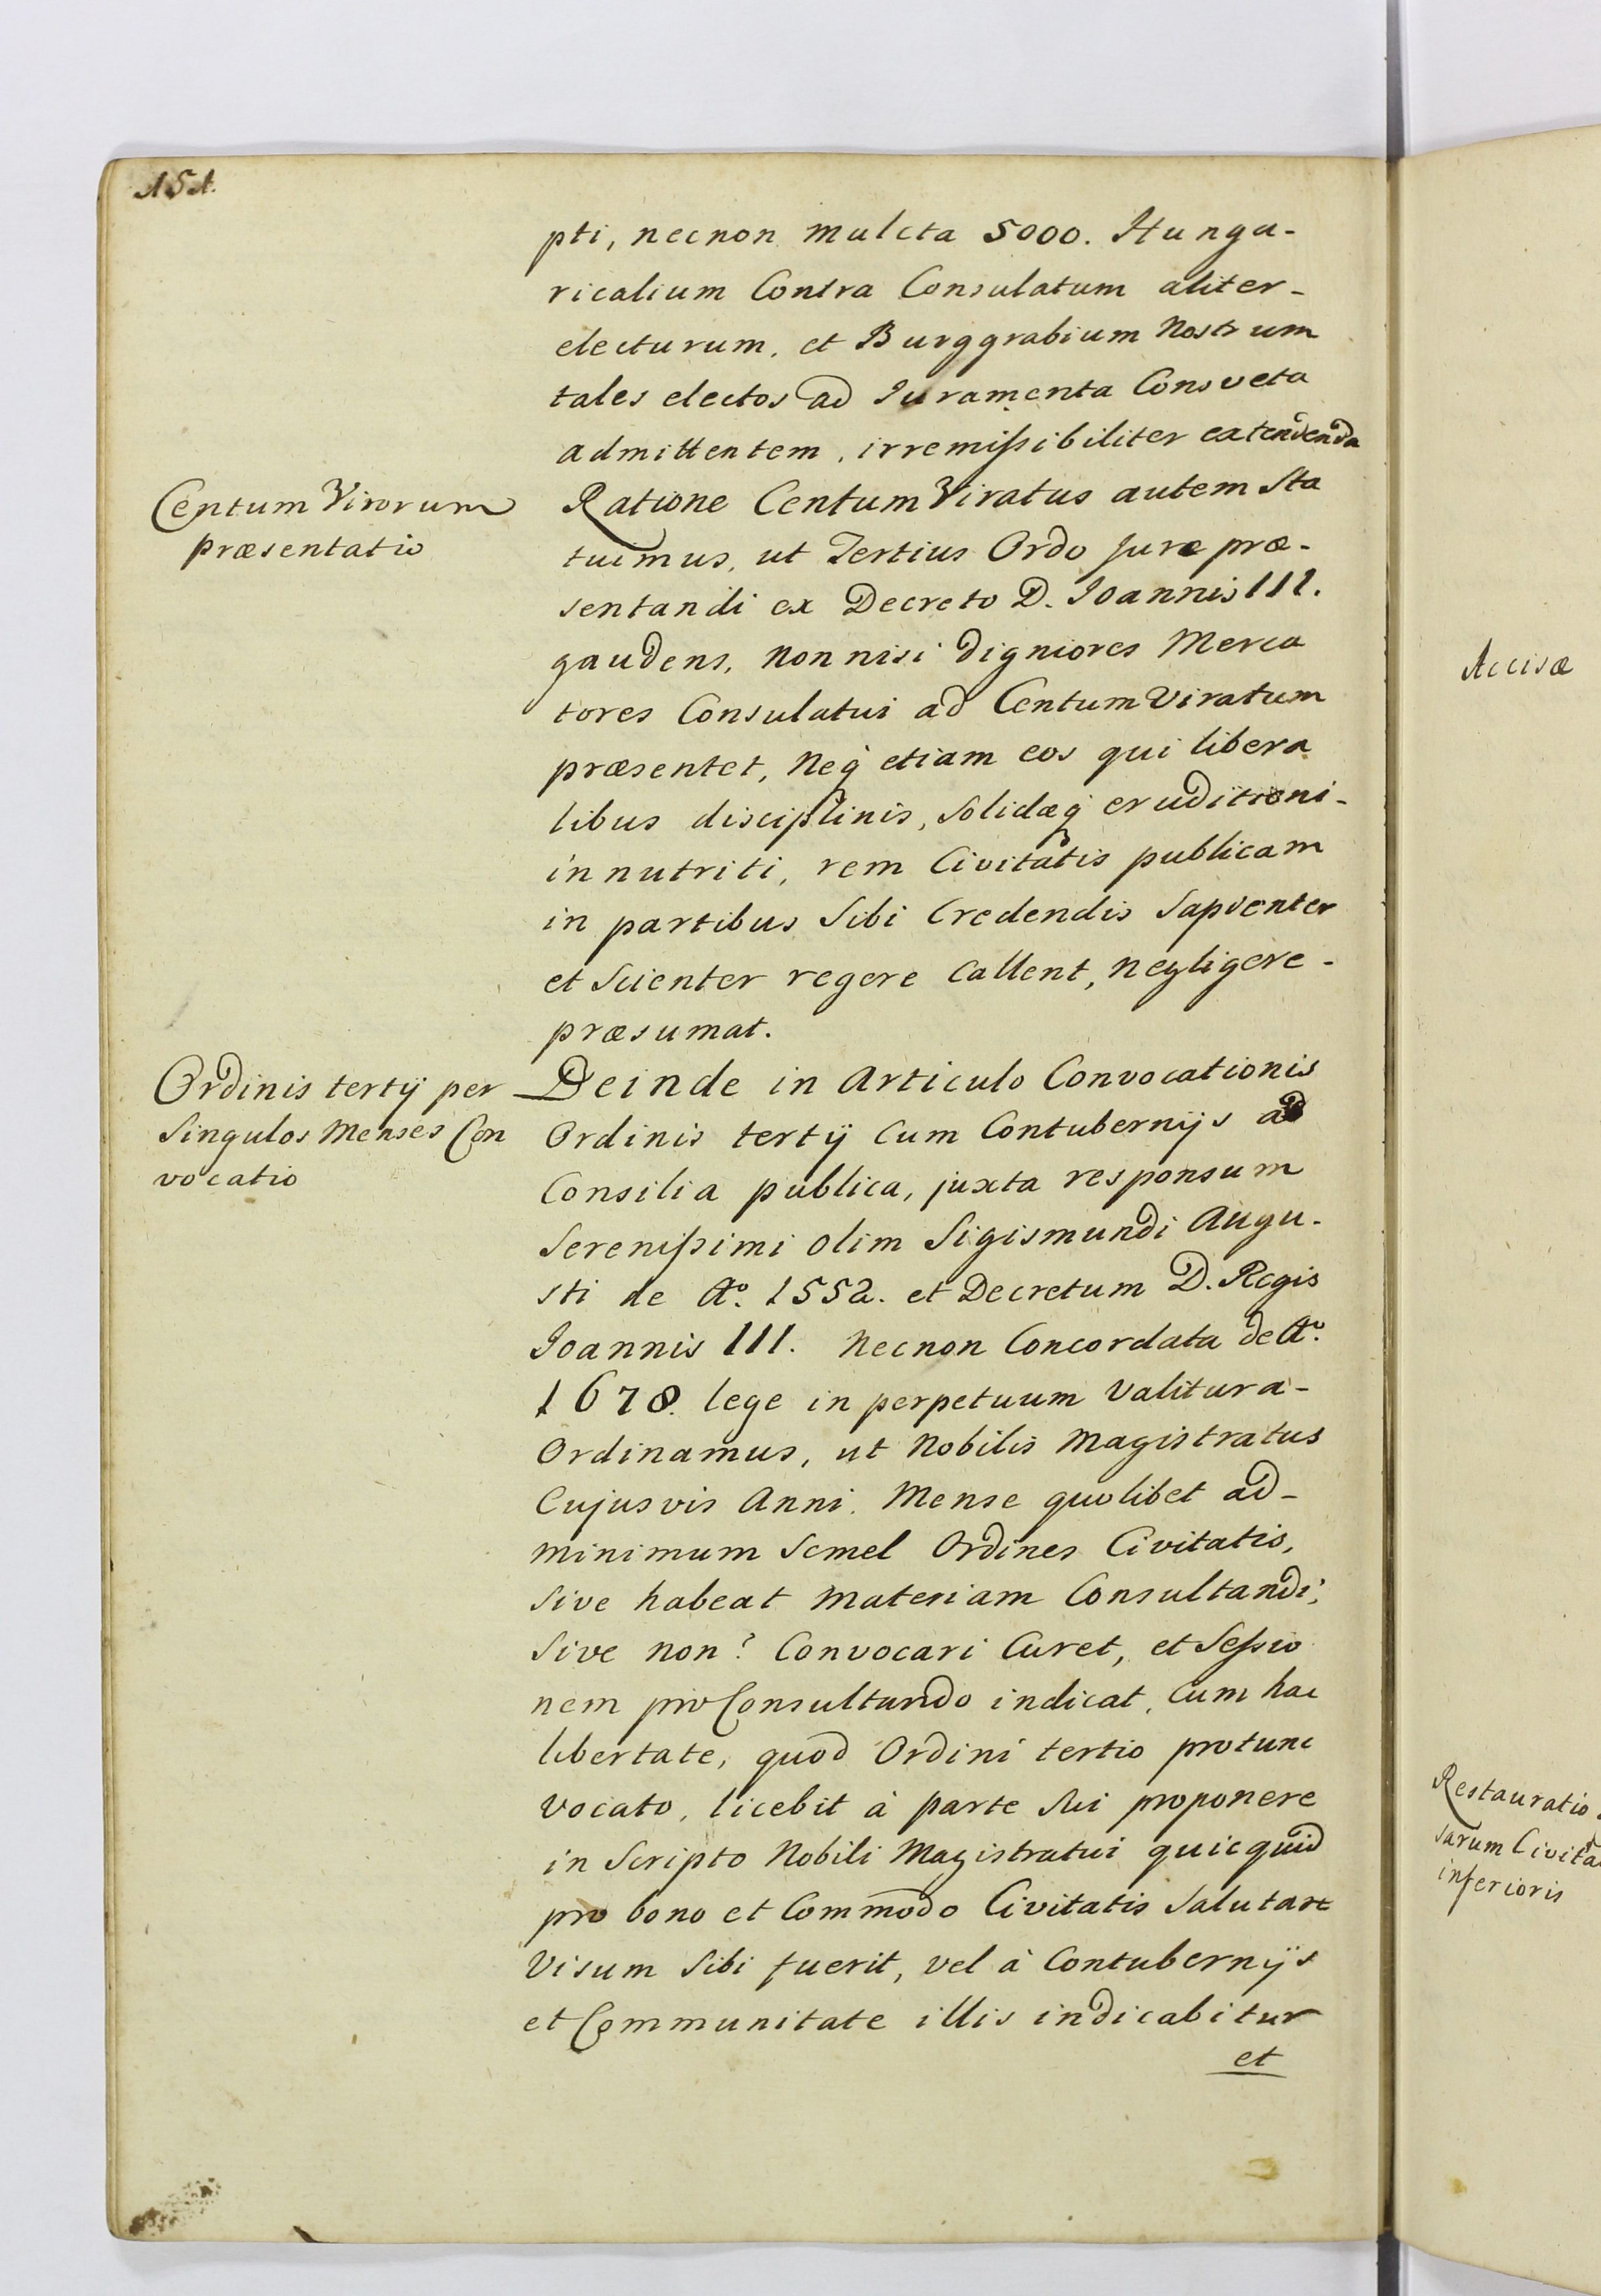 151.
pti, necnon mulcta 5000. Hunga-
ricalium Contra Consulatum aliter-
electurum, et Burggrabium Nostrum
tales electos ad Juramenta Consveta
admittentem, irremissibiliter extendenda
Centum Virorum
præsentatio
Ratione Centum Viratus autem sta
tuimus, ut Tertius Ordo jure præ-
sentandi ex Decreto D. Joannis III.
gaudens, non nisi digniores Merca
tores Consulatui ad Centum Viratum
præsentet, Neq́ etiam eos qui libera
libus disciplinis, solidæq́ eruditioni-
innutriti, rem Civitatis publicam
in partibus sibi Credendis sapienter
et scienter regere callent, negligere-
præsumat.
Ordinis tertÿ per
singulos Menses Con
vocatio
Deinde in Articulo Convocationis
Ordinis tertÿ cum Contubernÿs ad
Consilia publica, juxta responsum
Serenissimi olim Sigismundi Augu-
sti de Aº. 1552. et Decretum D. Regis
Joannis III. Necnon Concordata de Aº.
1678. lege in perpetuum valitura-
Ordinamus, ut Nobilis Magistratus
Cujusvis Anni. Mense quolibet ad-
minimum semel Ordines Civitatis,
sive habeat materiam Consultandi,
sive non? Convocari Curet, et Sessio
nem pro Consultando indicat, cum hac
libertate, quod Ordini tertio protunc
vocato, licebit à parte sui proponere
in scripto Nobili Magistratui quicquid
pro bono et Com̄odo Civitatis salutare
Visum sibi fuerit, vel à Contubernÿs
et Communitate illis indicabitur
et
Accisæ
Restauratio
sarum Civita
inferioris